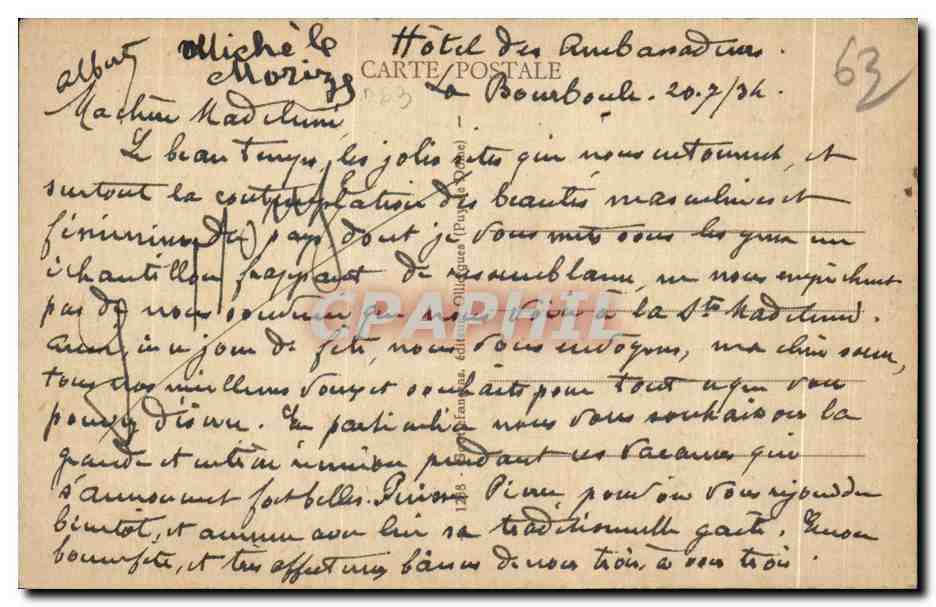 Albert Michèle Hôtel des Ambassadeurs.
Morizs CARTE POSTALE
La Bourboule. 20.7/34.
63
Ma chère Madeleine,
Le beau temps, les jolis sites qui nous entourent, et
surtout la contemplation des beautés masculines et
féminines du pays dont je vous mets sous les yeux un
échantillon frappant de ressemblance, ne nous empêchent
pas de nous souvenir que nous voici à la Ste Madeleine.
Aussi, en ce jour de fête, nous vous envoyons, ma chère sœur,
tous nos meilleurs vœux et souhaits pour tout ce que vous
pouvez désirer. En particulier nous vous souhaitons la
grande et entière réunion pendant ces vacances qui
s'annoncent fort belles. Puisse Pierre pouvoir vous rejoindre
bientôt, et amener avec lui sa traditionnelle gaîté. Encore
bonne fête, et très affectueux baisers de nous trois, à vous trois.
1288 éditeur, Olliergues (Puy-de-Dôme)
CPAPHIL